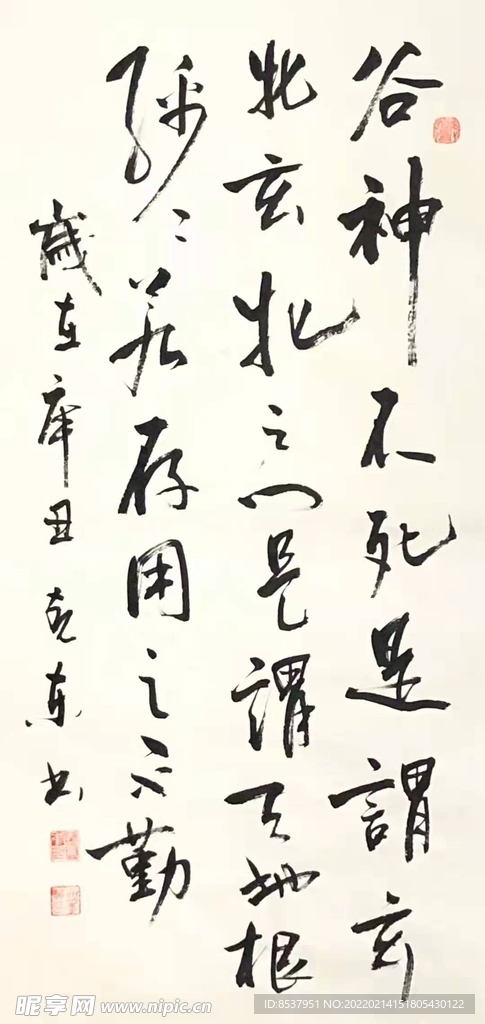 谷神不死是謂玄
牝玄牝之门是謂天地根
绵〻若存用之不勤
歲在辛丑克东书
昵享网 www.nipic.cn
ID:8537951 NO:20220214151805430122